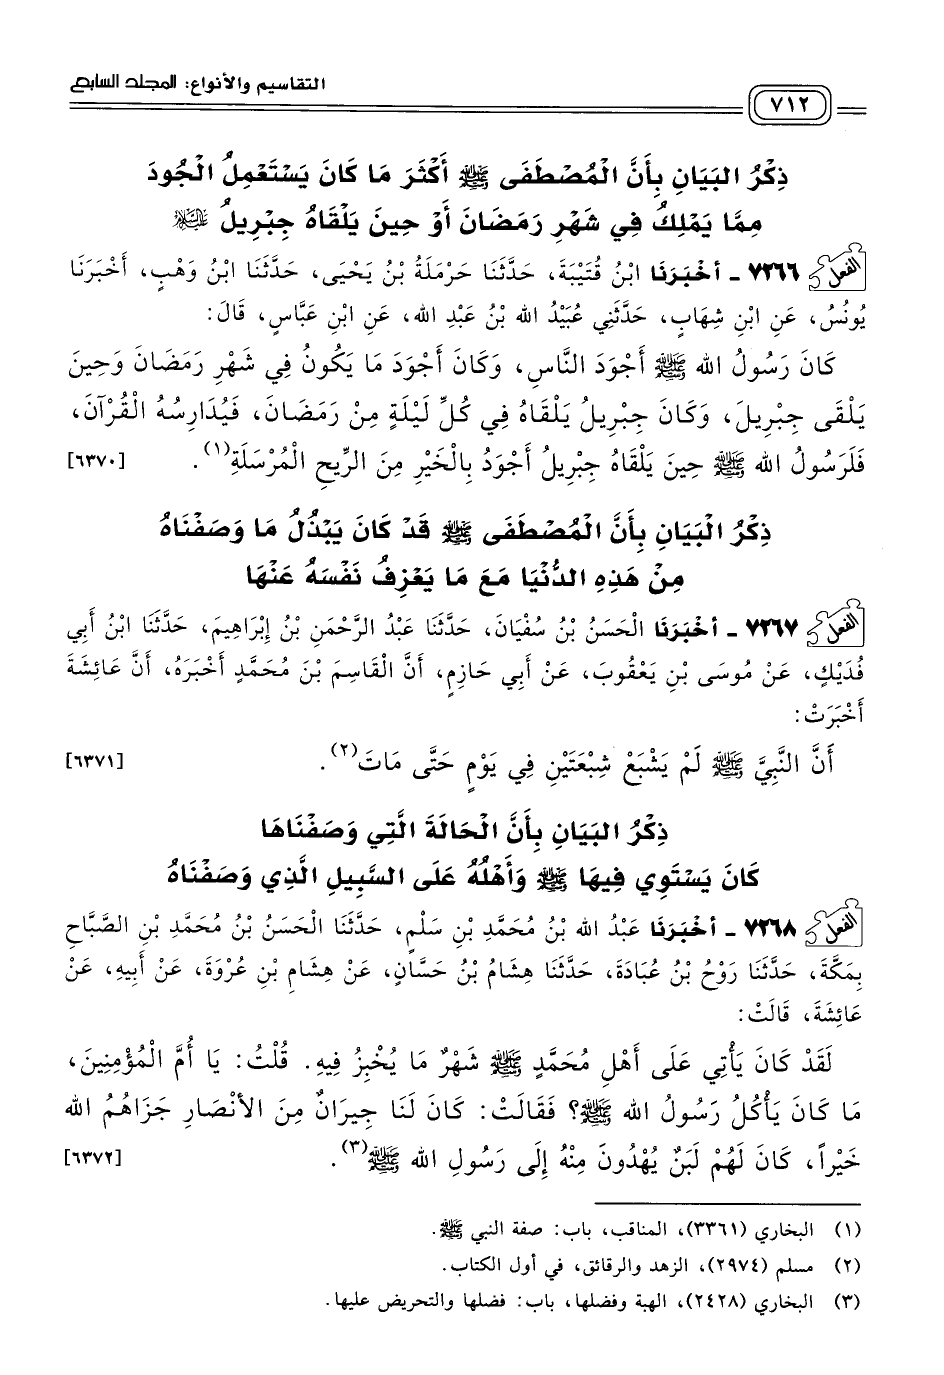 التقاسيم والأنواع: المجلد السابع
٧١٢
ذِكْرُ البَيَانِ بِأَنَّ الْمُصْطَفَى ﷺ أَكْثَرَ مَا كَانَ يَسْتَعْمِلُ الْجُودَ
مِمَّا يَمْلِكُ فِي شَهْرِ رَمَضَانَ أَوْ حِينَ يَلْقَاهُ جِبْرِيلُ عليه السلام
الفعل ٧٢٦٦ - أَخْبَرَنَا ابْنُ قُتَيْبَةَ، حَدَّثَنَا حَرْمَلَةُ بْنُ يَحْيَى، حَدَّثَنَا ابْنُ وَهْبٍ، أَخْبَرَنَا
يُونُسُ، عَنِ ابْنِ شِهَابٍ، حَدَّثَنِي عُبَيْدُ الله بْنُ عَبْدِ الله، عَنِ ابْنِ عَبَّاسٍ، قَالَ:
كَانَ رَسُولُ الله ﷺ أَجْوَدَ النَّاسِ، وَكَانَ أَجْوَدَ مَا يَكُونُ فِي شَهْرِ رَمَضَانَ وَحِينَ
يَلْقَى جِبْرِيلَ، وَكَانَ جِبْرِيلُ يَلْقَاهُ فِي كُلِّ لَيْلَةٍ مِنْ رَمَضَانَ، فَيُدَارِسُهُ الْقُرْآنَ،
فَلَرَسُولُ الله ﷺ حِينَ يَلْقَاهُ جِبْرِيلُ أَجْوَدُ بِالْخَيْرِ مِنَ الرِّيحِ الْمُرْسَلَةِ(١). [٦٣٧٠]
ذِكْرُ الْبَيَانِ بِأَنَّ الْمُصْطَفَى ﷺ قَدْ كَانَ يَبْذُلُ مَا وَصَفْنَاهُ
مِنْ هَذِهِ الدُّنْيَا مَعَ مَا يَعْزِفُ نَفْسَهُ عَنْهَا
الفعل ٧٢٦٧ - أَخْبَرَنَا الْحَسَنُ بْنُ سُفْيَانَ، حَدَّثَنَا عَبْدُ الرَّحْمَنِ بْنُ إِبْرَاهِيمَ، حَدَّثَنَا ابْنُ أَبِي
فُدَيْكٍ، عَنْ مُوسَى بْنِ يَعْقُوبَ، عَنْ أَبِي حَازِمٍ، أَنَّ الْقَاسِمَ بْنَ مُحَمَّدٍ أَخْبَرَهُ، أَنَّ عَائِشَةَ
أَخْبَرَتْ:
أَنَّ النَّبِيَّ ﷺ لَمْ يَشْبَعْ شِبْعَتَيْنِ فِي يَوْمٍ حَتَّى مَاتَ(٢). [٦٣٧١]
ذِكْرُ البَيَانِ بِأَنَّ الْحَالَةَ الَّتِي وَصَفْنَاهَا
كَانَ يَسْتَوِي فِيهَا ﷺ وَأَهْلُهُ عَلَى السَّبِيلِ الَّذِي وَصَفْنَاهُ
الفعل ٧٢٦٨ - أَخْبَرَنَا عَبْدُ الله بْنُ مُحَمَّدِ بْنِ سَلْمٍ، حَدَّثَنَا الْحَسَنُ بْنُ مُحَمَّدِ بْنِ الصَّبَّاحِ
بِمَكَّةَ، حَدَّثَنَا رَوْحُ بْنُ عُبَادَةَ، حَدَّثَنَا هِشَامُ بْنُ حَسَّانٍ، عَنْ هِشَامِ بْنِ عُرْوَةَ، عَنْ أَبِيهِ، عَنْ
عَائِشَةَ، قَالَتْ:
لَقَدْ كَانَ يَأْتِي عَلَى أَهْلِ مُحَمَّدٍ ﷺ شَهْرٌ مَا يُخْبِزُ فِيهِ. قُلْتُ: يَا أُمَّ الْمُؤْمِنِينَ،
مَا كَانَ يَأْكُلُ رَسُولُ الله ﷺ؟ فَقَالَتْ: كَانَ لَنَا جِيرَانٌ مِنَ الأَنْصَارِ جَزَاهُمُ الله
خَيْراً، كَانَ لَهُمْ لَبَنٌ يُهْدُونَ مِنْهُ إِلَى رَسُولِ الله ﷺ(٣). [٦٣٧٢]
(١) البخاري (٣٣٦١)، المناقب، باب: صفة النبي ﷺ.
(٢) مسلم (٢٩٧٤)، الزهد والرقائق، في أول الكتاب.
(٣) البخاري (٢٤٢٨)، الهبة وفضلها، باب: فضلها والتحريض عليها.